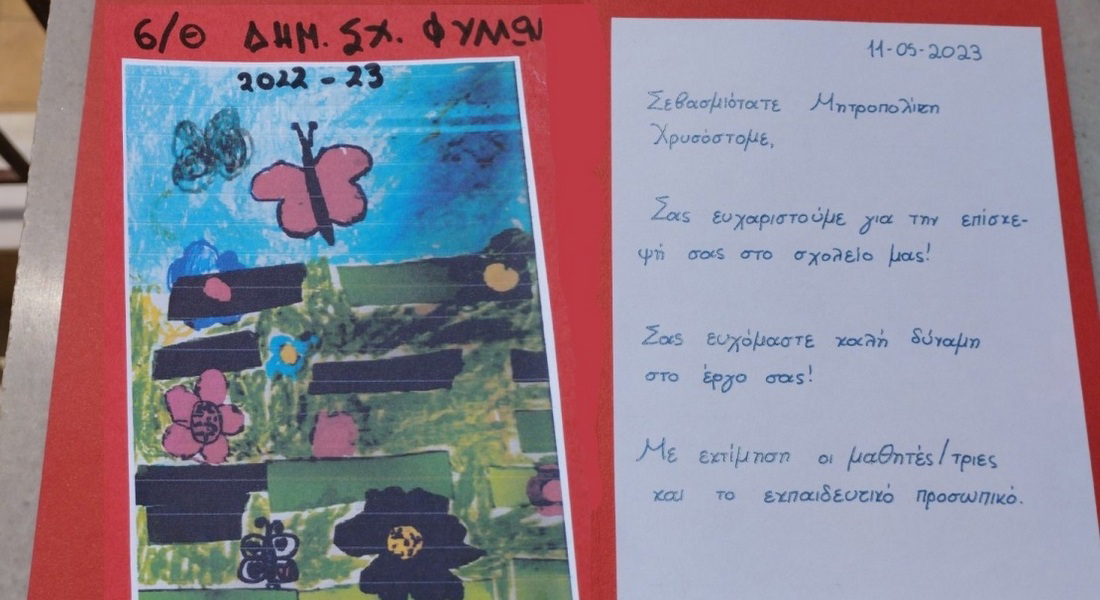 6/Θ ΔΗΜ. ΣΧ. ΦΥΛΩΝ
2022 - 23
11-05-2023
Σεβασμιότατε Μητροπολίτη
Χρυσόστομε,
Σας ευχαριστούμε για την επίσκε-
ψή σας στο σχολείο μας!
Σας ευχόμαστε καλή δύναμη
στο έργο σας!
Με εκτίμηση οι μαθητές/τριες
και το εκπαιδευτικό προσωπικό.